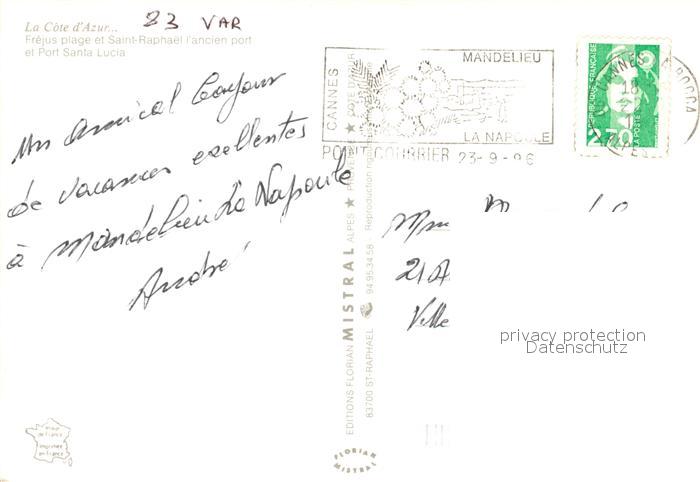 La Côte d'Azur...
83 VAR
Fréjus plage et Saint-Raphaël l'ancien port
et Port Santa Lucia
Un amical bonjour
de vacances exellentes
à Mandelieu La Napoule
André
CANNES
MANDELIEU
LA NAPOULE
POINT COURRIER 23-9-96
RÉPUBLIQUE FRANÇAISE
2,70
LA POSTE
CANNES
18
BOCCA
EDITIONS FLORIAN MISTRAL ALPES ★ PROVENCE ★ CÔTE D'AZUR
83700 ST-RAPHAEL 94.95.34.58 Reproduction
Mm
21 A
Ville
privacy protection
Datenschutz
image
de France
imprimée
en France
FLORIAN
MISTRAL